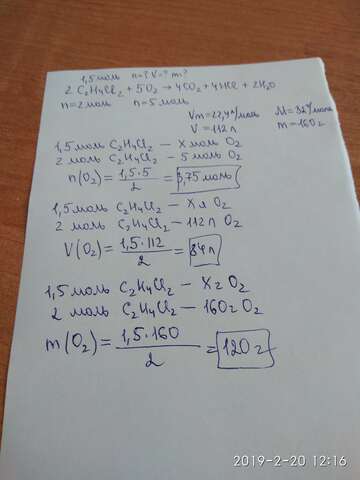 1,5моль n=? V=? m?
2 C₂H₄Cl₂ + 5O₂ → 4CO₂ + 4HCl + 2H₂O
n=2моль n=5моль
Vm=22,4л/моль M=32г/моль
V=112л m=160г
1,5моль C₂H₄Cl₂ — X моль O₂
2 моль C₂H₄Cl₂ — 5 моль O₂
n(O₂) = 1,5·5/2 = 3,75моль
1,5моль C₂H₄Cl₂ — X л O₂
2 моль C₂H₄Cl₂ — 112л O₂
V(O₂) = 1,5·112/2 = 84л
1,5 моль C₂H₄Cl₂ — X г O₂
2 моль C₂H₄Cl₂ — 160г O₂
m(O₂) = 1,5·160/2 = 120г
2019-2-20 12:16